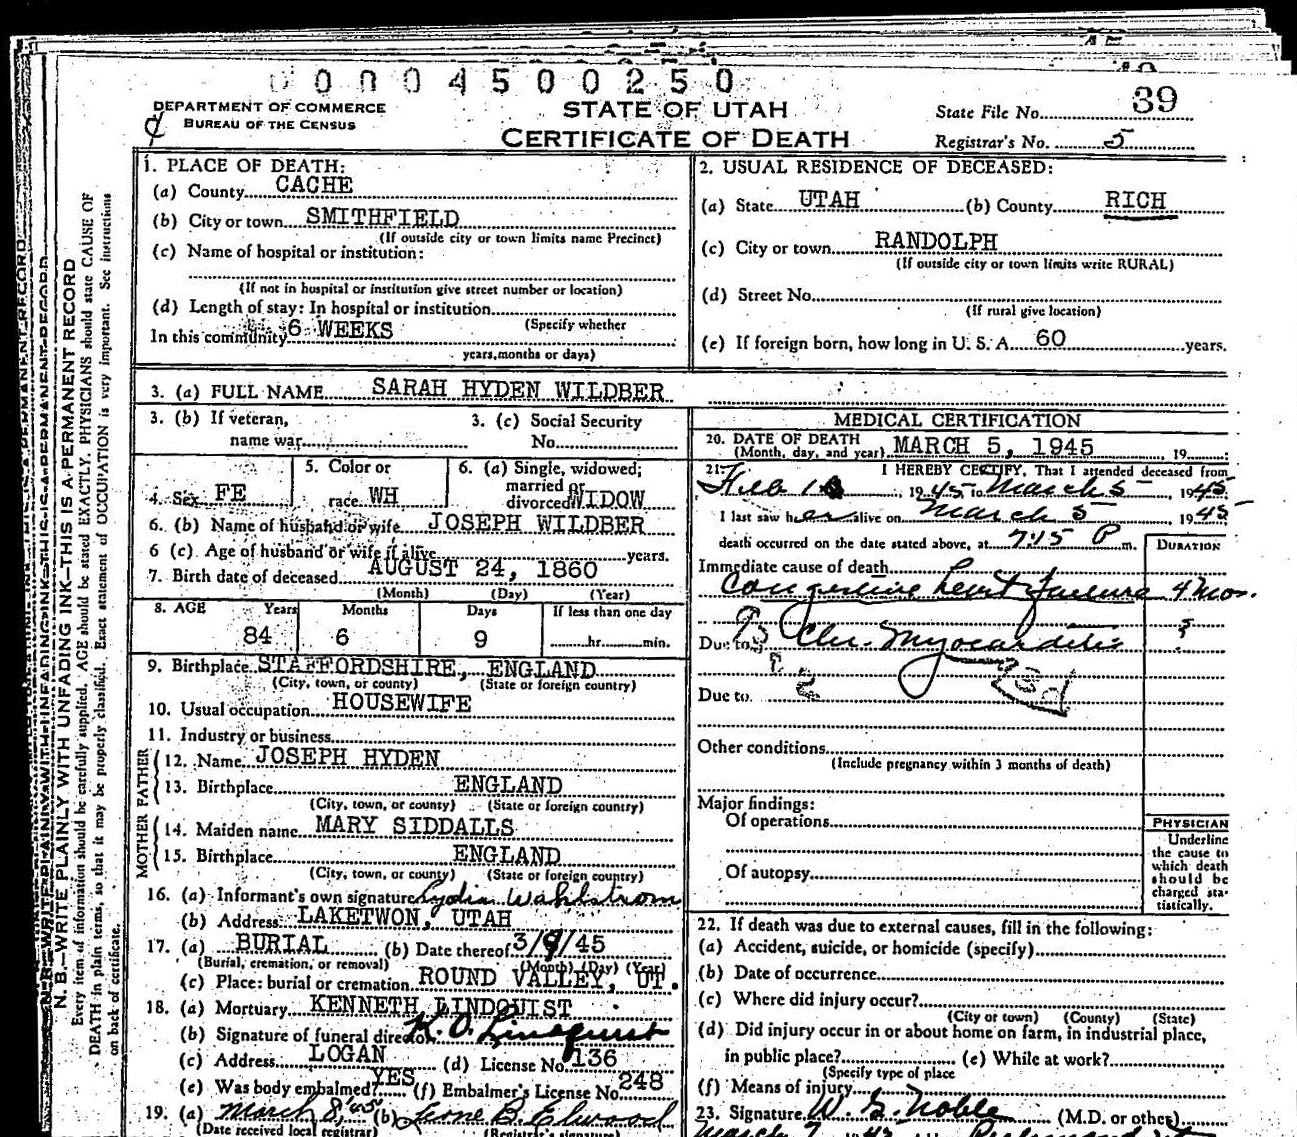 00004500250
DEPARTMENT OF COMMERCE
BUREAU OF THE CENSUS
STATE OF UTAH
CERTIFICATE OF DEATH
State File No. 39
Registrar's No. 5
N. B.—WRITE PLAINLY WITH UNFADING INK—THIS IS A PERMANENT RECORD
Every item of information should be carefully supplied. AGE should be stated EXACTLY. PHYSICIANS should state CAUSE OF
DEATH in plain terms, so that it may be properly classified. Exact statement of OCCUPATION is very important. See instructions
on back of certificate.
1. PLACE OF DEATH:
(a) County CACHE
(b) City or town SMITHFIELD
(If outside city or town limits name Precinct)
(c) Name of hospital or institution:
(If not in hospital or institution give street number or location)
(d) Length of stay: In hospital or institution
(Specify whether
In this community 6 WEEKS
years, months or days)
2. USUAL RESIDENCE OF DECEASED:
(a) State UTAH (b) County RICH
(c) City or town RANDOLPH
(If outside city or town limits write RURAL)
(d) Street No.
(If rural give location)
(e) If foreign born, how long in U. S. A. 60 years.
3. (a) FULL NAME SARAH HYDEN WILDBER
3. (b) If veteran,
name war
3. (c) Social Security
No.
4. Sex FE
5. Color or
race WH
6. (a) Single, widowed;
married or
divorced WIDOW
6. (b) Name of husband or wife JOSEPH WILDBER
6 (c). Age of husband or wife if alive years.
7. Birth date of deceased AUGUST 24, 1860
(Month) (Day) (Year)
8. AGE Years Months Days If less than one day
84 6 9 hr. min.
9. Birthplace STAFFORDSHIRE, ENGLAND
(City, town, or county) (State or foreign country)
10. Usual occupation HOUSEWIFE
11. Industry or business
FATHER
12. Name JOSEPH HYDEN
13. Birthplace ENGLAND
(City, town, or county) (State or foreign country)
MOTHER
14. Maiden name MARY SIDDALLS
15. Birthplace ENGLAND
(City, town, or county) (State or foreign country)
16. (a) Informant's own signature Lydia Wahlstrom
(b) Address LAKETWON, UTAH
17. (a) BURIAL (b) Date thereof 3/9/45
(Burial, cremation, or removal) (Month) (Day) (Year)
(c) Place: burial or cremation ROUND VALLEY, UT.
18. (a) Mortuary KENNETH LINDQUIST
(b) Signature of funeral director K. O. Lindquist
(c) Address LOGAN (d) License No. 136
(e) Was body embalmed? YES (f) Embalmer's License No. 248
19. (a) March 8, 45 (b) Leone B. Elwood
(Date received local registrar) (Registrar's signature)
MEDICAL CERTIFICATION
20. DATE OF DEATH
(Month, day, and year) MARCH 5, 1945 19
21. I HEREBY CERTIFY, That I attended deceased from
Feb 1945 to March 5, 1945
I last saw her alive on March 5 1945
death occurred on the date stated above, at 7:15 P m.
DURATION
Immediate cause of death
Congestive heart failure 4 mos.
Due to Chr. Myocarditis ?
Due to
Other conditions
(Include pregnancy within 3 months of death)
Major findings:
Of operations
Of autopsy
PHYSICIAN
Underline
the cause to
which death
should be
charged sta-
tistically.
22. If death was due to external causes, fill in the following:
(a) Accident, suicide, or homicide (specify)
(b) Date of occurrence
(c) Where did injury occur?
(City or town) (County) (State)
(d) Did injury occur in or about home on farm, in industrial place,
in public place? (e) While at work?
(Specify type of place
(f) Means of injury
23. Signature W. G. Noble (M.D. or other)
March 7